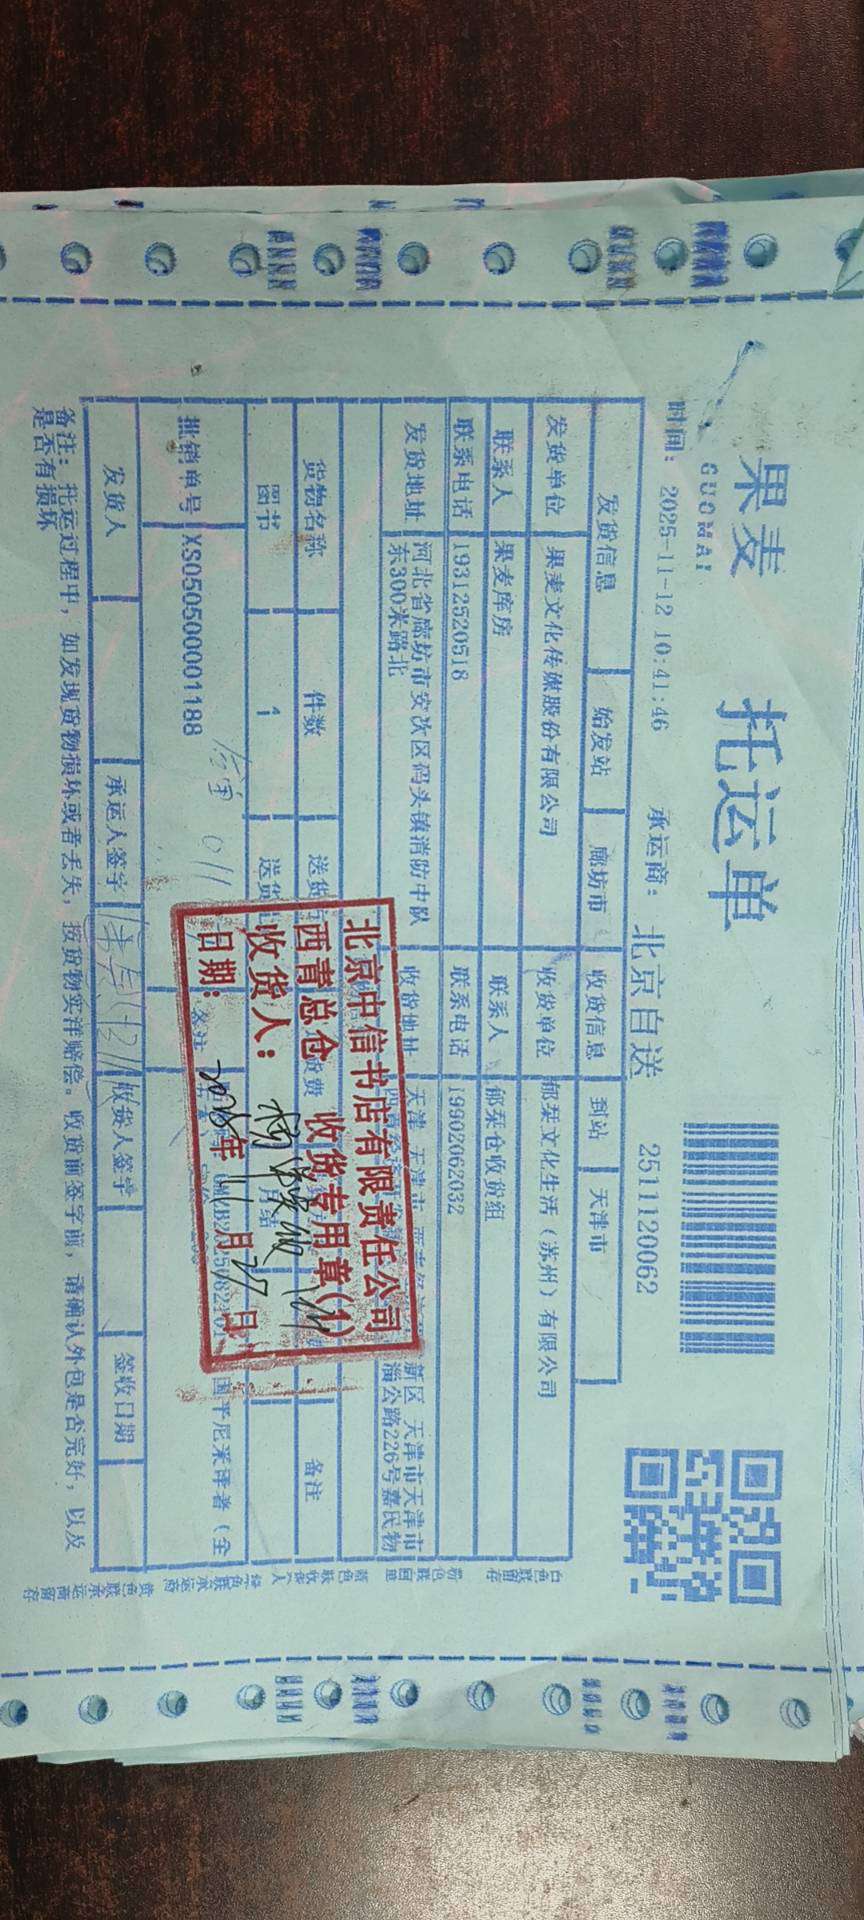 果麦 托运单
GUOMAI
时间: 2025-11-12 10:41:46 承运商: 北京自送 2511120062
发货信息 始发站 廊坊市 收货信息 到站 天津市
发货单位 果麦文化传媒股份有限公司 收货单位 郁栞文化生活（苏州）有限公司
联系人 果麦库房 联系人 郁栞仓收货组
联系电话 19312520518 联系电话 19902062032
发货地址 河北省廊坊市安次区码头镇消防中队 收货地址 天津 天津市 新区 天津市天津市
东300米路北 淄公路226号嘉民物
货物名称 件数 送货 费 备注
图书 1 送货 月结
批销单号 XS050500001188 备注 国平尼采译者（全
北京中信书店有限责任公司
西青总仓 收货专用章(1)
收货人:
日期: 2025年11月27日
发货人 承运人签字 收货人签字 签收日期
备注: 托运过程中，如发现货物损坏或者丢失，按货物实洋赔偿。收货前签字前，请确认外包是否完好，以及
是否有损坏
白色联留存
粉色联回单
蓝色联收货人
绿色联承运商
黄色联承运商留存